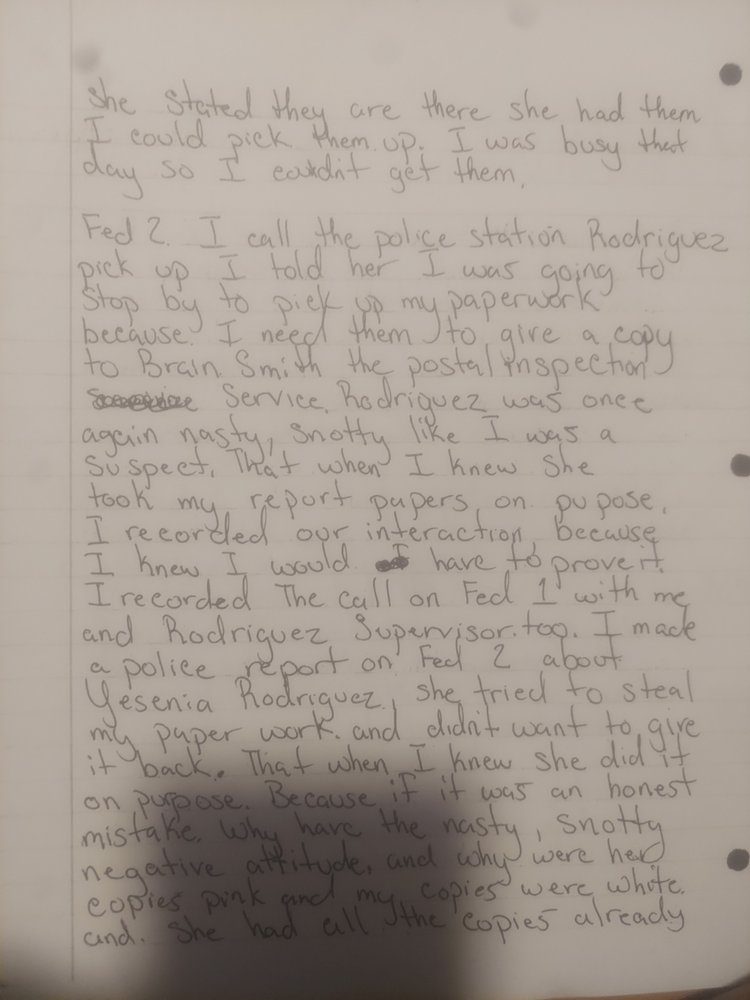 She stated they are there she had them
I could pick them up. I was busy that
day so I couldn't get them.
Fed 2. I call the police station Rodriguez
pick up I told her I was going to
Stop by to pick up my paperwork
because. I need them to give a copy
to Brain Smith the postal inspection
Service. Rodriguez was once
again nasty, snotty like I was a
suspect. That when I knew she
took my report papers on pupose.
I recorded our interaction because
I knew I would have to prove it.
I recorded The call on Fed 1 with me
and Rodriguez Supervisor. too. I made
a police report on Fed 2 about
Yesenia Rodriguez, she tried to steal
my paper work. and didn't want to give
it back. That when I knew she did it
on purpose. Because if it was an honest
mistake. Why have the nasty, snotty
negative attitude, and why were her
copies pink and my copies were white.
and. She had all the copies already